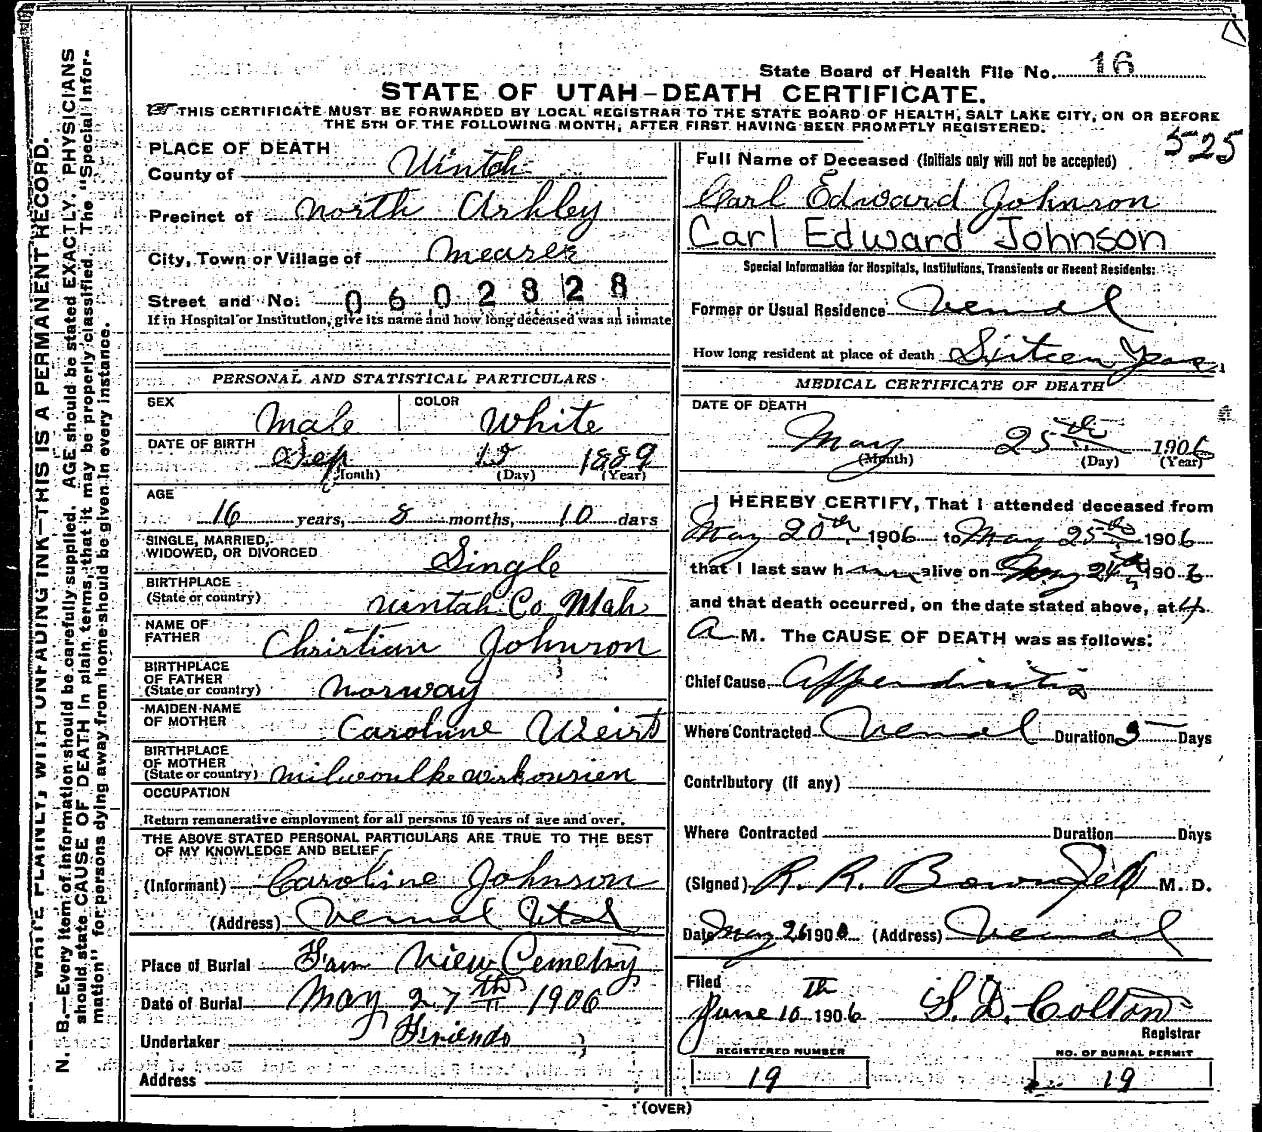 State Board of Health File No. 16
STATE OF UTAH-DEATH CERTIFICATE.
THIS CERTIFICATE MUST BE FORWARDED BY LOCAL REGISTRAR TO THE STATE BOARD OF HEALTH, SALT LAKE CITY, ON OR BEFORE
THE 5TH OF THE FOLLOWING MONTH, AFTER FIRST HAVING BEEN PROMPTLY REGISTERED.
525
WRITE PLAINLY, WITH UNFADING INK—THIS IS A PERMANENT RECORD.
N. B.—Every item of information should be carefully supplied. AGE should be stated EXACTLY. PHYSICIANS
should state CAUSE OF DEATH in plain terms, that it may be properly classified. The "Special Infor-
mation" for persons dying away from home should be given in every instance.
PLACE OF DEATH
County of Uintah
Precinct of North Ashley
City, Town or Village of
Street and No. 0602828
If in Hospital or Institution, give its name and how long deceased was an inmate
PERSONAL AND STATISTICAL PARTICULARS
SEX Male COLOR White
DATE OF BIRTH Sep 15 1889
(Month) (Day) (Year)
AGE
16 years, 8 months, 10 days
SINGLE, MARRIED,
WIDOWED, OR DIVORCED Single
BIRTHPLACE
(State or country) Uintah Co Utah
NAME OF
FATHER Christian Johnson
BIRTHPLACE
OF FATHER
(State or country) Norway
MAIDEN NAME
OF MOTHER Caroline
BIRTHPLACE
OF MOTHER
(State or country)
OCCUPATION
Return remunerative employment for all persons 10 years of age and over.
THE ABOVE STATED PERSONAL PARTICULARS ARE TRUE TO THE BEST
OF MY KNOWLEDGE AND BELIEF
(Informant) Caroline Johnson
(Address) Vernal Utah
Place of Burial View Cemetry
Date of Burial May 27th 1906
Undertaker Friends
Address
Full Name of Deceased (Initials only will not be accepted)
Carl Edward Johnson
Carl Edward Johnson
Special Information for Hospitals, Institutions, Transients or Recent Residents:
Former or Usual Residence Vernal
How long resident at place of death Sixteen Years
MEDICAL CERTIFICATE OF DEATH
DATE OF DEATH
May 25th 1906
(Month) (Day) (Year)
I HEREBY CERTIFY, That I attended deceased from
May 20th 1906 to May 25th 1906
that I last saw him alive on May 24th 1906
and that death occurred, on the date stated above, at 4
A M. The CAUSE OF DEATH was as follows:
Chief Cause Appendicitis
Where Contracted Vernal Duration 5 Days
Contributory (if any)
Where Contracted Duration Days
(Signed) R. R. M. D.
Date May 26 1906 (Address) Vernal
Filed
June 10th 1906 S. D. Colton
Registrar
REGISTERED NUMBER
19
NO. OF BURIAL PERMIT
19
(OVER)